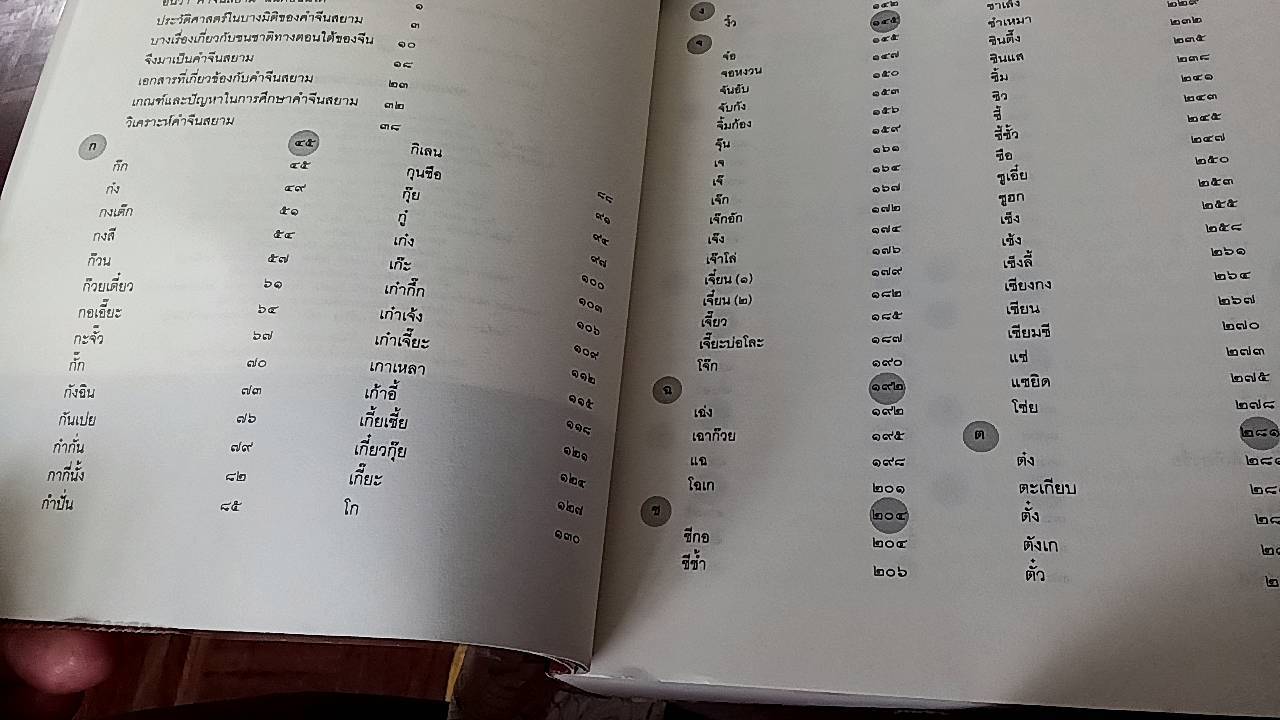 ๑
ประวัติศาสตร์ในบางมิติของคำจีนสยาม ๓
บางเรื่องเกี่ยวกับชนชาติทางตอนใต้ของจีน ๑๐
จึงมาเป็นคำจีนสยาม ๑๘
เอกสารที่เกี่ยวข้องกับคำจีนสยาม ๒๓
เกณฑ์และปัญหาในการศึกษาคำจีนสยาม ๓๒
วิเคราะห์คำจีนสยาม ๓๘
ก ๔๕
ก๊ก ๔๕
ก๋ง ๔๙
กงเต๊ก ๕๑
กงสี ๕๔
ก๊วน ๕๗
ก๋วยเตี๋ยว ๖๑
กอเอี๊ยะ ๖๔
กะจั๊ว ๖๗
กั๊ก ๗๐
กังฉิน ๗๓
กันเปย ๗๖
กำกั่น ๗๙
กากี่นั้ง ๘๒
กำปั่น ๘๕
กิเลน ๘๘
กุนซือ ๙๑
กุ๊ย ๙๔
กู๋ ๙๗
เก๋ง ๑๐๐
เก๊ะ ๑๐๓
เก๋ากี๊ก ๑๐๖
เก๋าเจ้ง ๑๐๙
เก๋าเจี๊ยะ ๑๑๒
เกาเหลา ๑๑๕
เก้าอี้ ๑๑๘
เกี้ยเซี้ย ๑๒๑
เกี๋ยวกุ๊ย ๑๒๔
เกี๊ยะ ๑๒๗
โก ๑๓๐
ง
งิ้ว ๑๔๒
จ ๑๔๕
จ๋อ ๑๔๕
จอหงวน ๑๔๗
จันอับ ๑๕๐
จับกัง ๑๕๓
จิ้มก้อง ๑๕๖
จุ๊น ๑๕๙
เจ ๑๖๑
เจ๊ ๑๖๔
เจ๊ก ๑๖๗
เจ๊กอัก ๑๗๒
เจ๊ง ๑๗๔
เจ๊าโล่ ๑๗๖
เจี๋ยน (๑) ๑๗๙
เจี๋ยน (๒) ๑๘๒
เจี๊ยว ๑๘๕
เจี๊ยะบ่อโละ ๑๘๗
โจ๊ก ๑๙๐
ฉ ๑๙๒
เฉ่ง ๑๙๒
เฉาก๊วย ๑๙๕
แฉ ๑๙๘
โฉเก ๒๐๑
ซ ๒๐๔
ซีกอ ๒๐๔
ซีซ้ำ ๒๐๖
ซาเล้ง
ซำเหมา ๒๒๙
ซินตึ๊ง ๒๓๒
ซินแส ๒๓๕
ซิ้ม ๒๓๘
ซิว ๒๔๑
ซี้ ๒๔๓
ซี้ซั้ว ๒๔๕
ซือ ๒๔๗
ซูเอี๋ย ๒๕๐
ซูฮก ๒๕๓
เซ็ง ๒๕๕
เซ้ง ๒๕๘
เซ็งลี้ ๒๖๑
เซียงกง ๒๖๔
เซียน ๒๖๗
เซียมซี ๒๗๐
แซ่ ๒๗๓
แซยิด ๒๗๕
โซ่ย ๒๗๘
ต ๒๘๑
ต๋ง ๒๘๑
ตะเกียบ
ตั๋ง
ตังเก
ตั๋ว